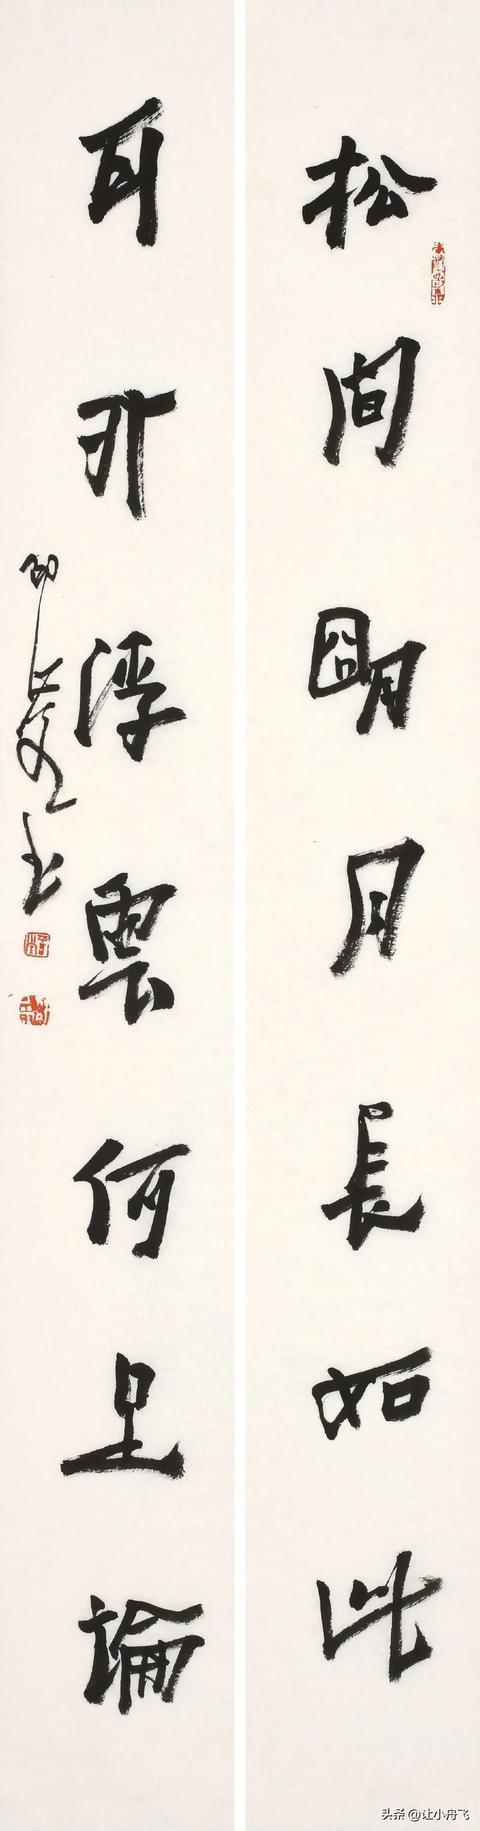 松間明月長如此
耳外浮雲何足論
头条 @让小舟飞